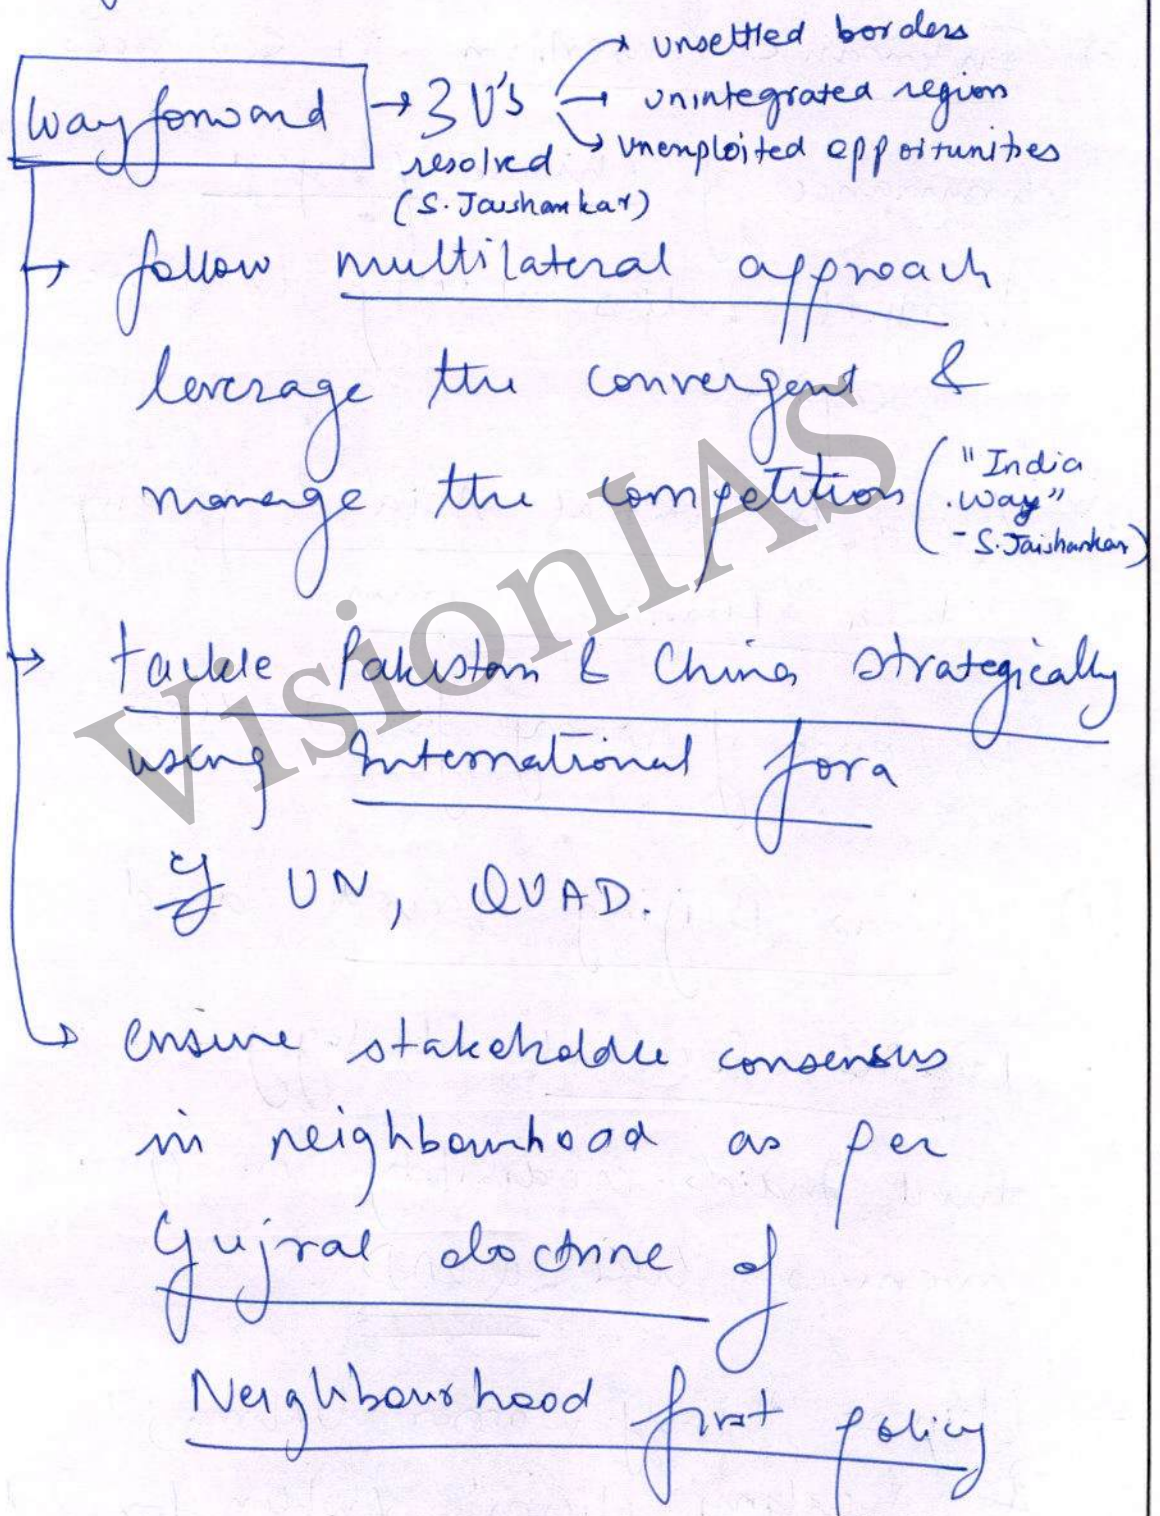 Way forward → 3 U's
→ unsettled borders
→ unintegrated region
→ unexploited opportunities
resolved
(S. Jaishankar)
→ follow multilateral approach
leverage the convergent &
manage the competition ("India
Way"
- S. Jaishankar)
→ tackle Pakistan & China strategically
using International fora
eg UN, QUAD.
→ ensure stakeholder consensus
in neighbourhood as per
Gujral doctrine of
Neighbourhood first policy
VisionIAS